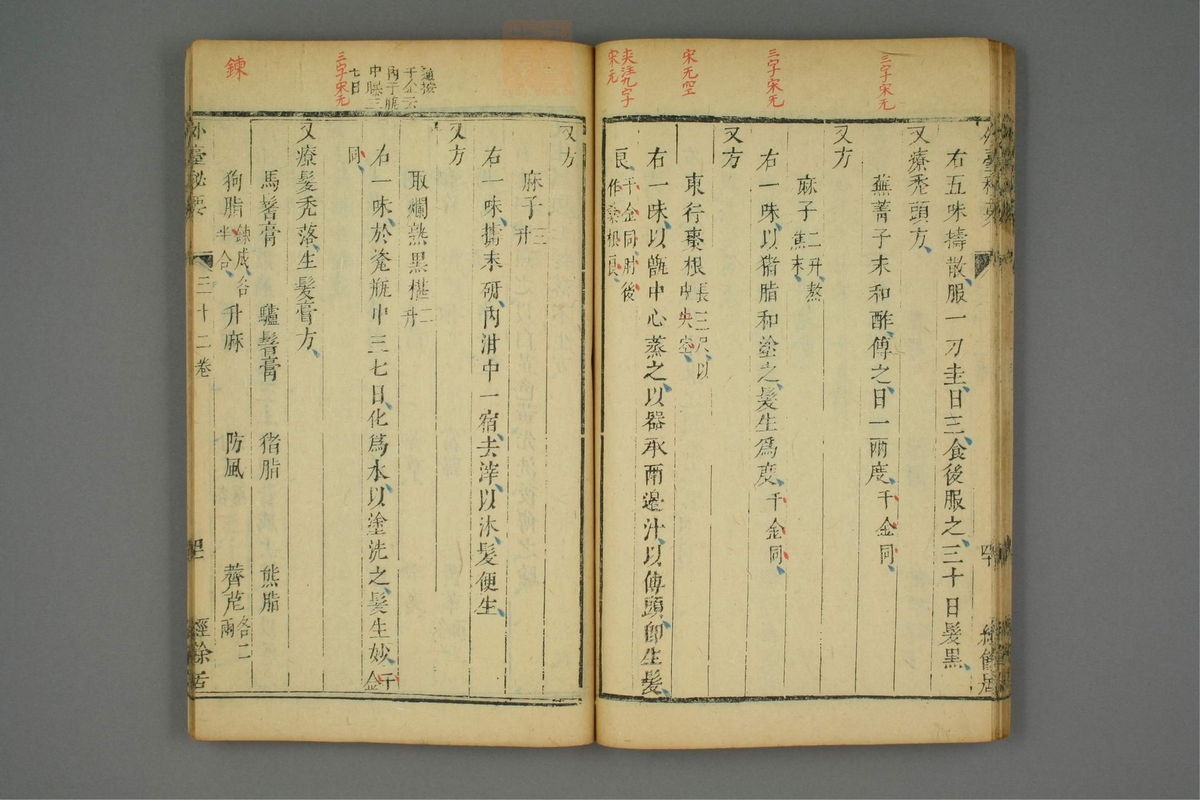 三字宋无
三字宋无
宋无空
夾注九字
宋无
右五味擣散服一刀圭日三食後服之三十日髮黑
又療禿頭方
蕪菁子末和酢傅之日一兩度千金同
又方
麻子二升熬
焦末
右一味以猪脂和塗之髮生為度千金同
又方
東行棗根長三尺以
中央空
右一味以甑中心蒸之以器承兩邊汁以傅頭即生髮
良千金同肘後
作桑根良
又方
麻子三
升
右一味擣末研內泔中一宿去滓以沐髮便生
又方
取爛熟黑椹二
升
右一味於瓷瓶中三七日化為水以塗洗之髮生妙千
金
同
又療髮禿落生髮膏方
馬鬐膏 驢鬐膏 猪脂 熊脂
狗脂鍊成各
半合 升麻 防風 薺苨各二
兩
外臺秘要 三十二卷 經餘居
千金云
內于瓶
中曝三
七日
三字宋无
鍊